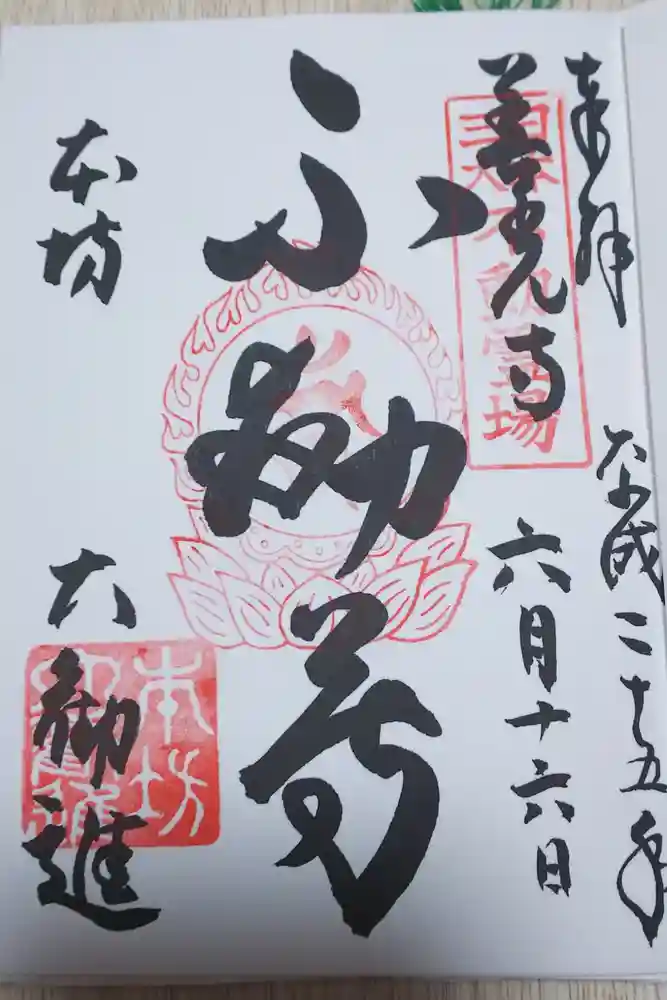 奉拝
平成二十五年
善光寺
不動霊場
六月十六日
不動尊
本坊
大勧進
本坊